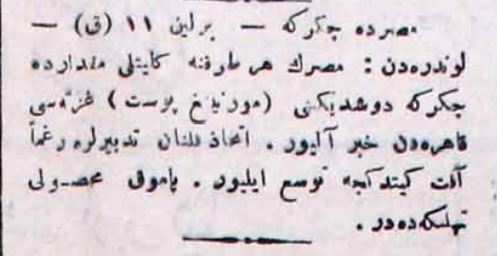 مصرده چكركه — برلين ١١ (ق) —
لوندره‌دن : مصرك هر طرفنه كليتلى مقدارده
چكركه دوشديكنى (مورنينغ پوست) غزته‌سى
قاهره‌دن خبر آليور . اتخاذ قلنان تدبيرلره رغماً
آفت كيتدكجه توسع ايليور . پاموق محصولى
تهلكه‌ده‌در .